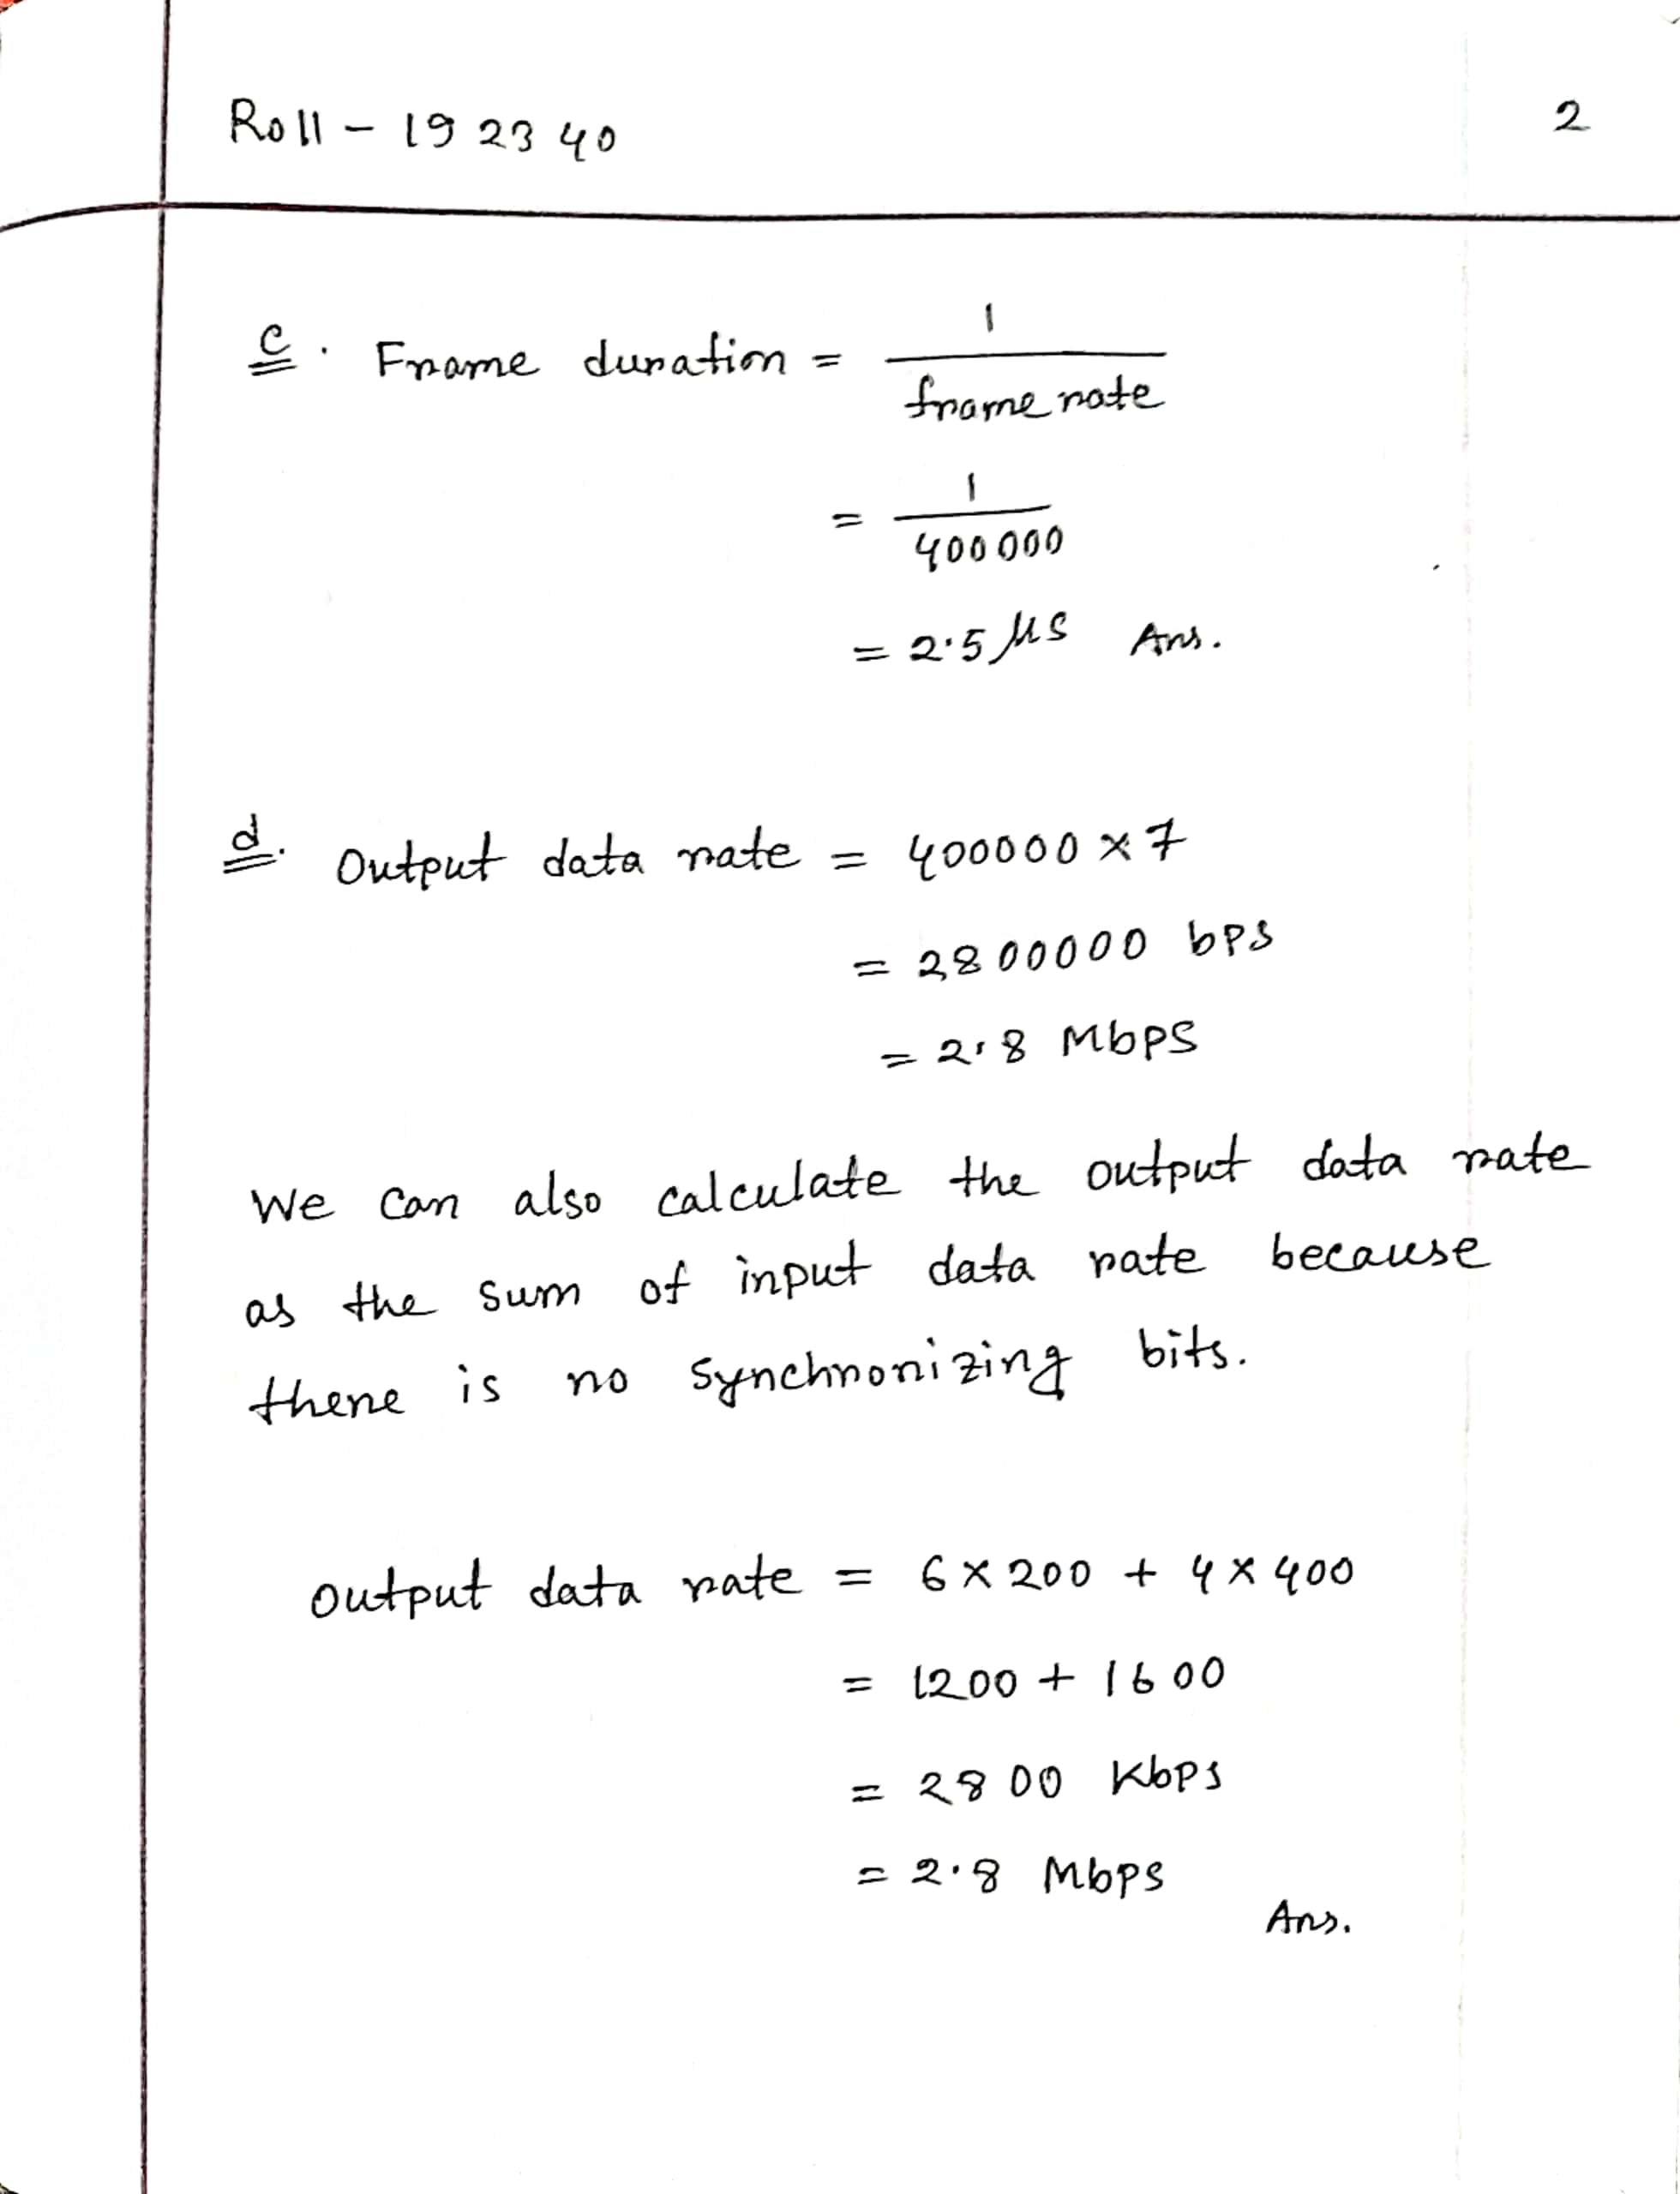 Roll - 192340
2
c. Frame duration = 1 / frame rate
= 1 / 400000
= 2.5 μs Ans.
d. Output data rate = 400000 × 7
= 2800000 bps
= 2.8 Mbps
We can also calculate the output data rate
as the sum of input data rate because
there is no synchronizing bits.
Output data rate = 6 × 200 + 4 × 400
= 1200 + 1600
= 2800 Kbps
= 2.8 Mbps
Ans.